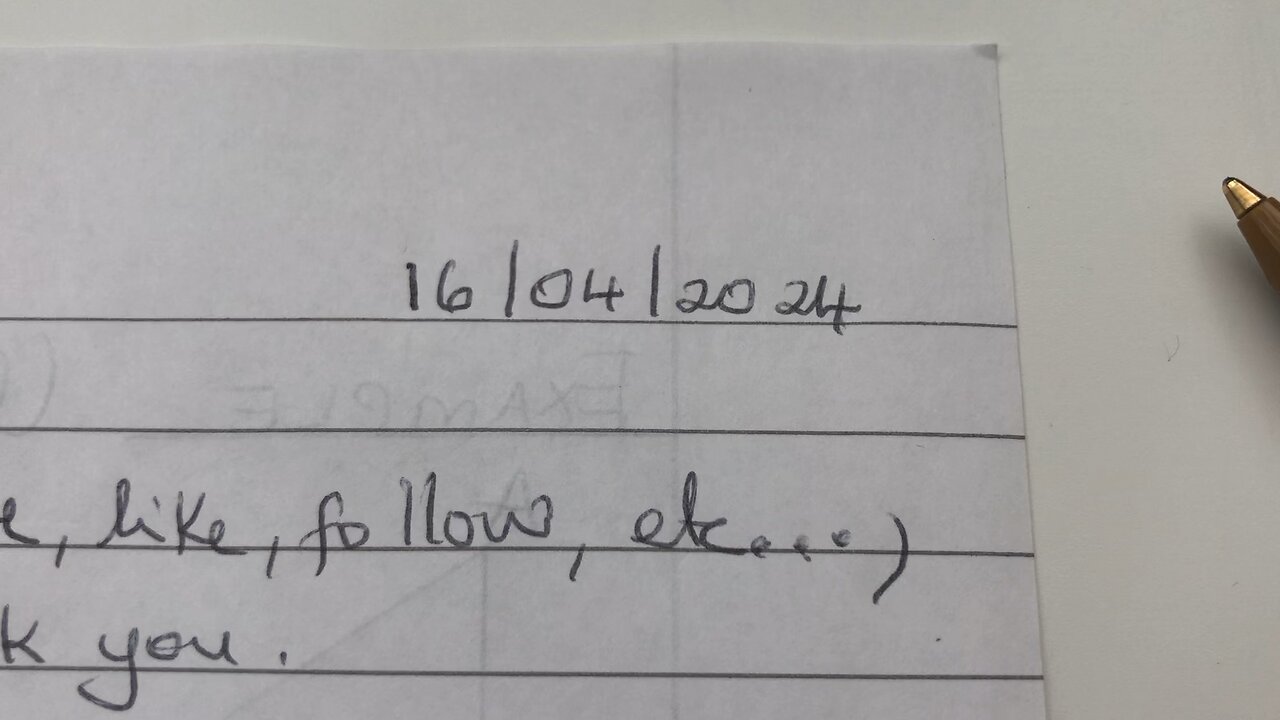 16/04/2024
EXAMPLE
e, like, follow, etc...)
k you.